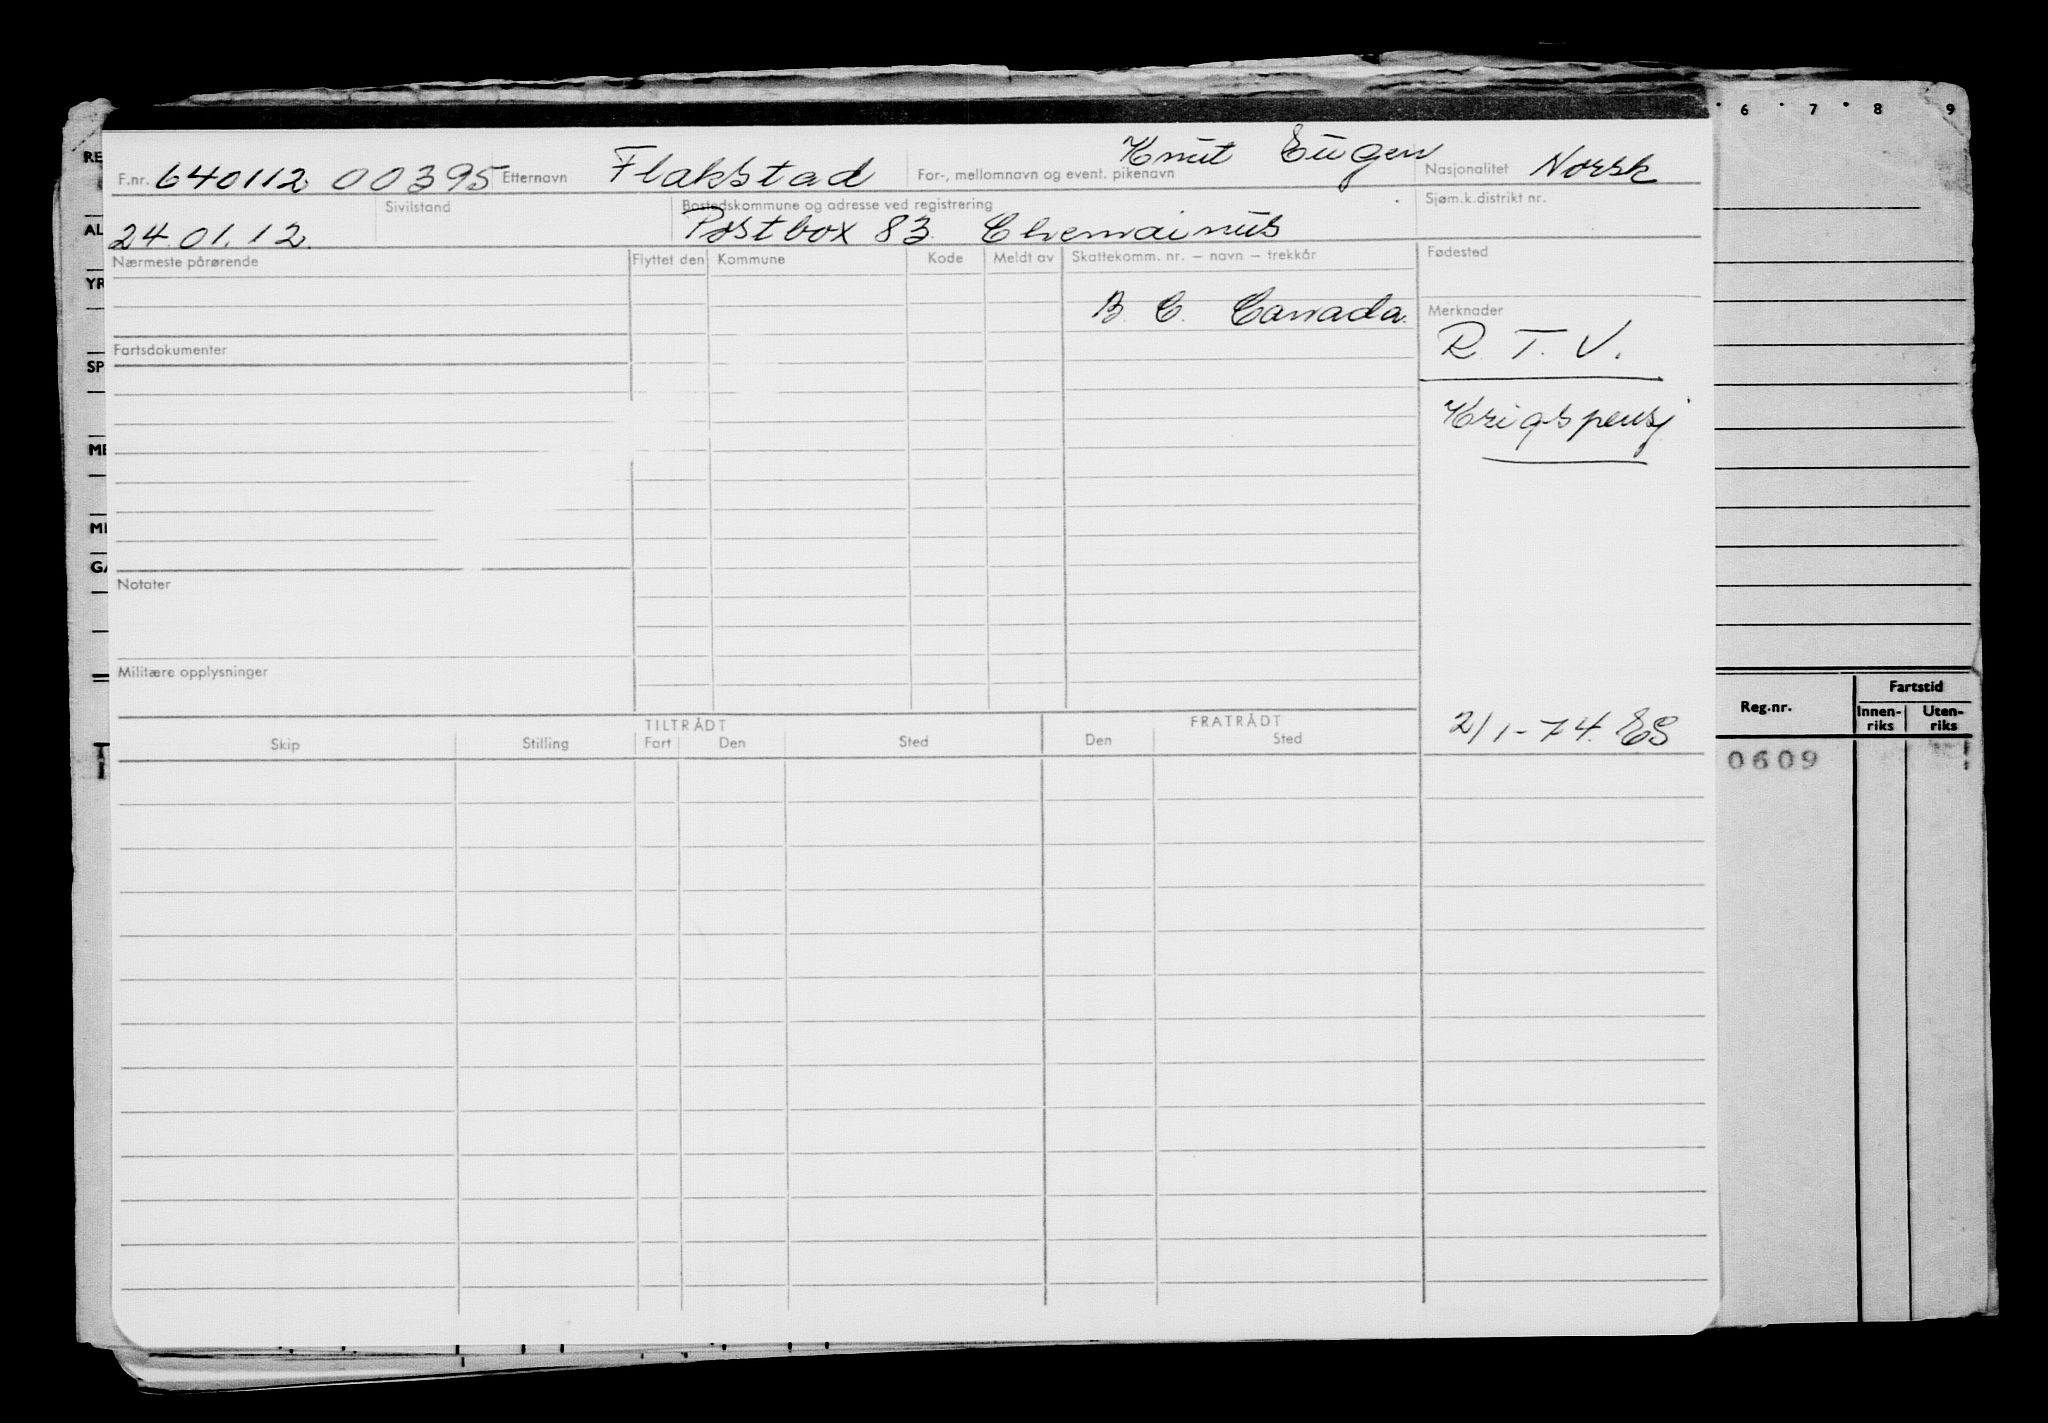 6 7 8 9
F.nr. 640112 00395 Etternavn Flakstad For-, mellomnavn og event. pikenavn Knut Eugen Nasjonalitet Norsk
24.01.12. Sivilstand Bostedskommune og adresse ved registrering Postbox 83 Chemainus Sjøm.k.distrikt nr.
Nærmeste pårørende Flyttet den Kommune Kode Meldt av Skattekomm. nr. – navn – trekkår Fødested
B. C. Canada. Merknader
R. T. V.
Fartsdokumenter
Krigspensj
Notater
Militære opplysninger
TILTRÅDT FRATRÅDT 2/1-74. ES
Skip Stilling Fart Den Sted Den Sted
RE
AL
YR
SP
ME
GA
Fartstid
Reg.nr. Innen-riks Uten-riks
0609